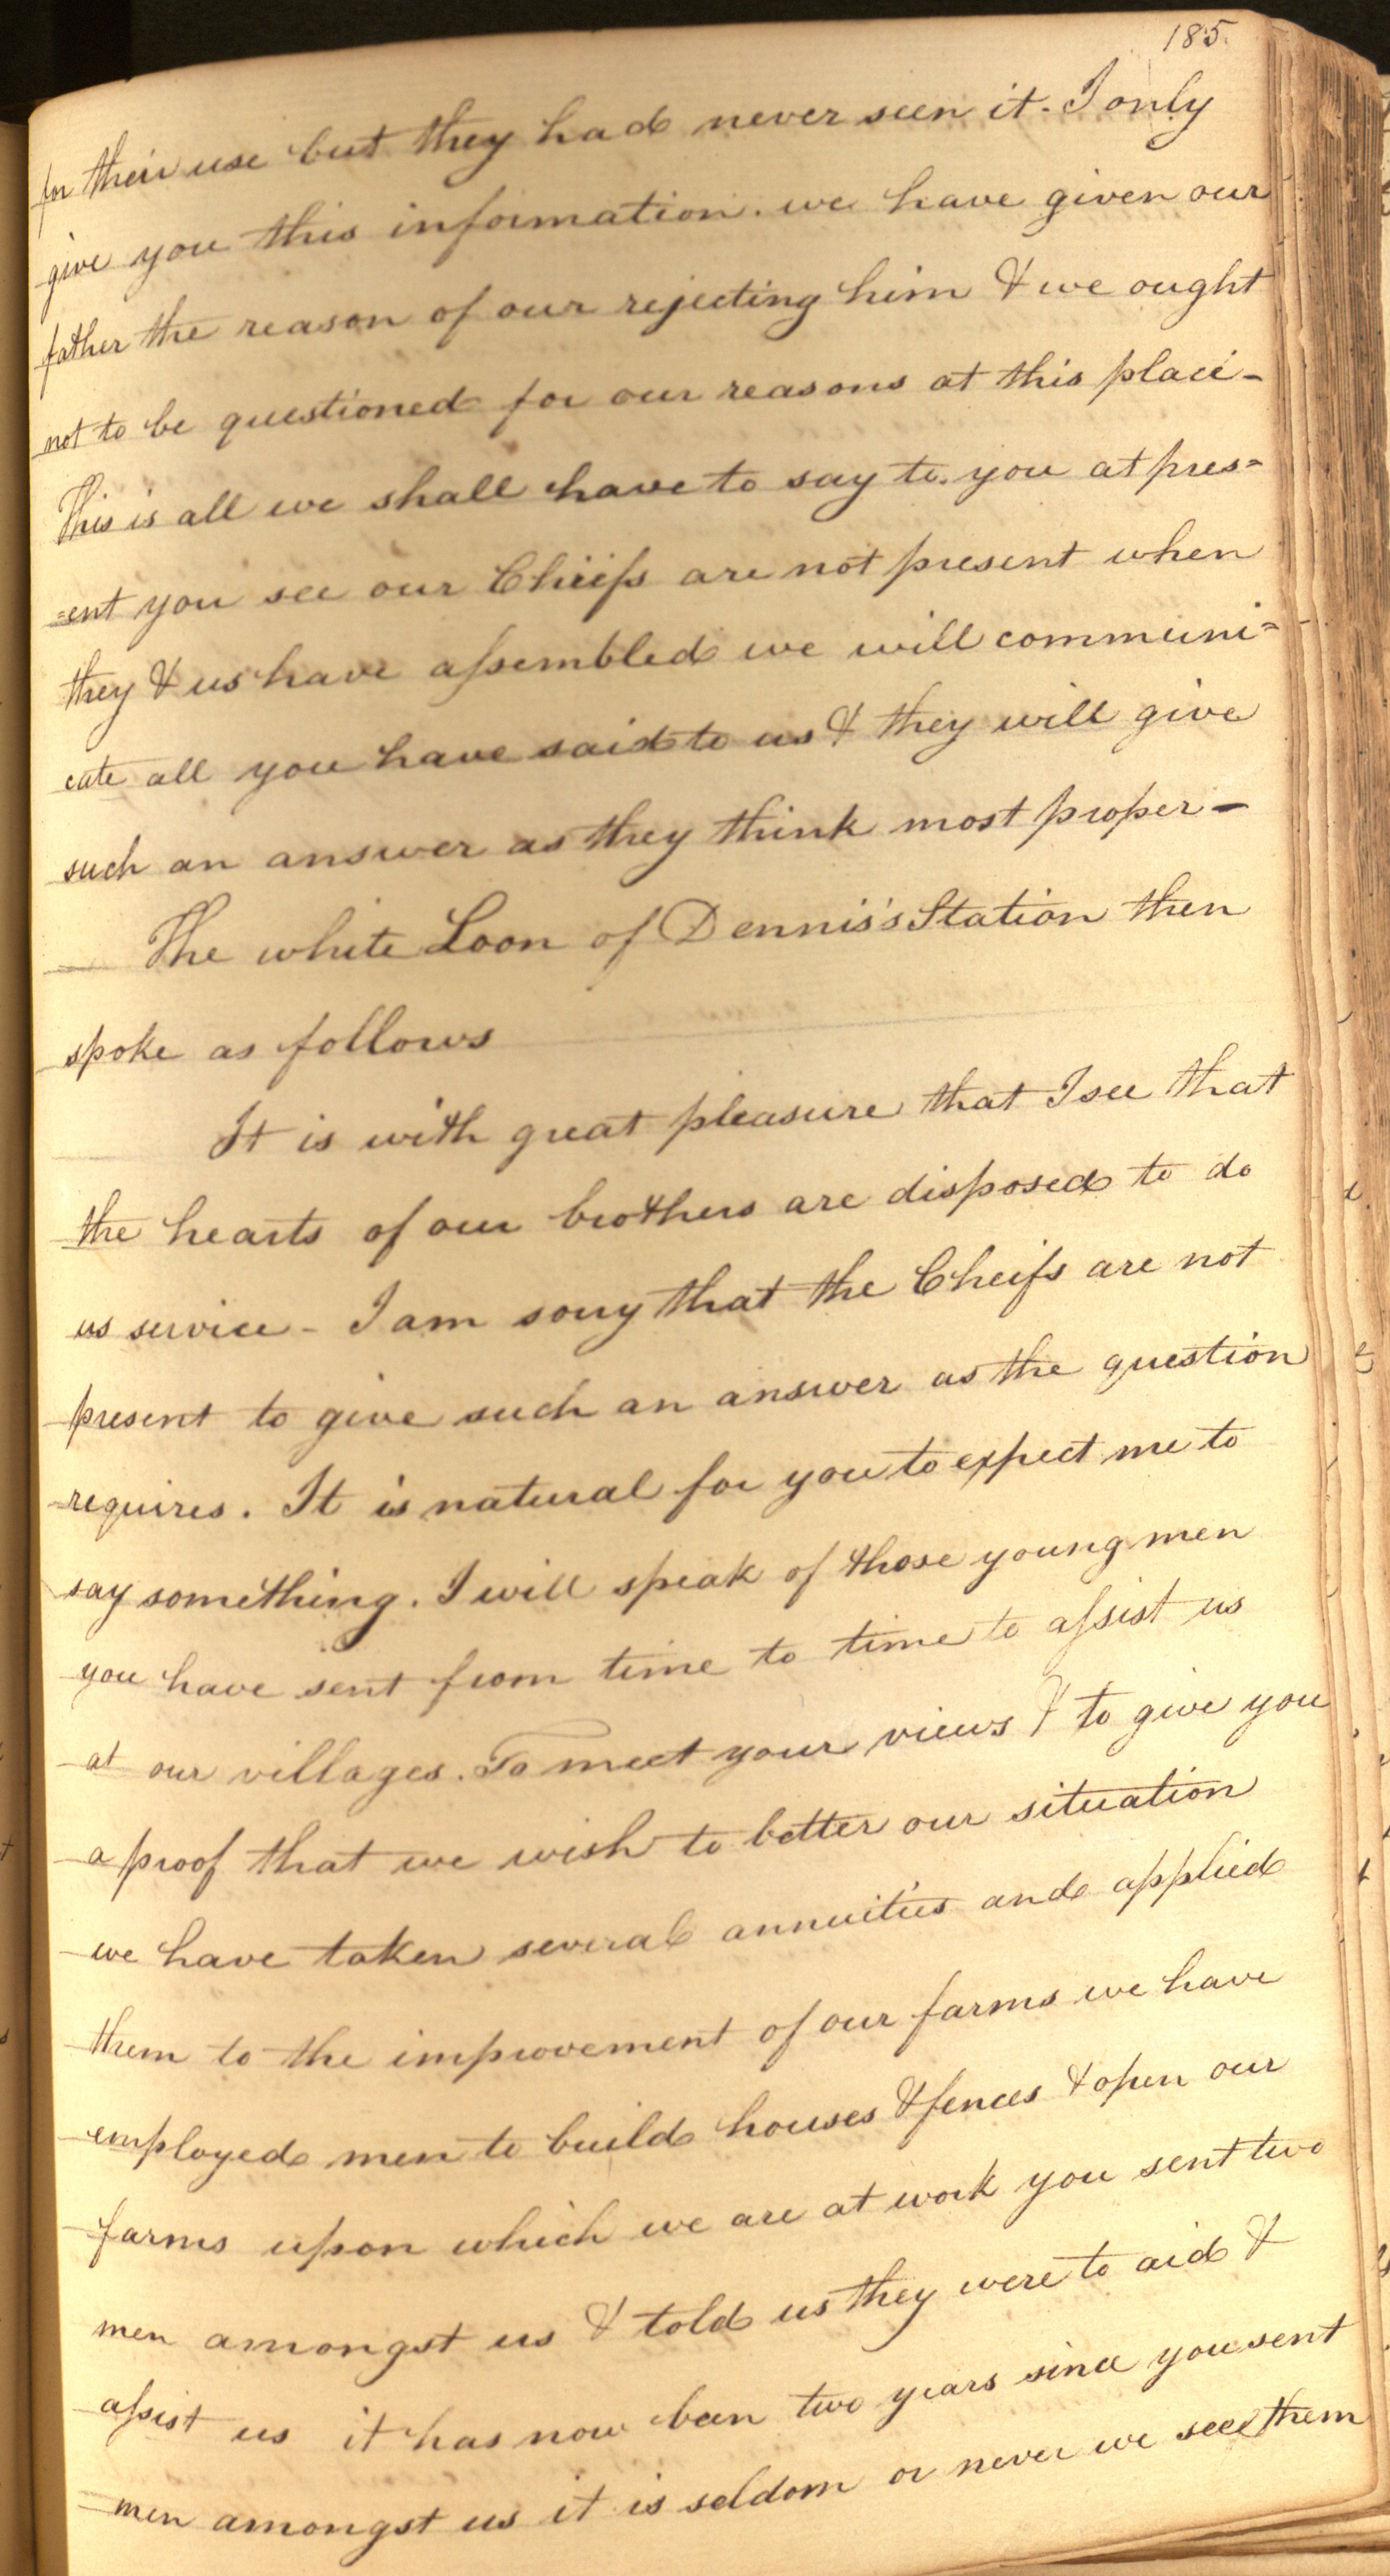 185.
for their use but they had never seen it. I only
give you this information. we have given our
father the reason of our rejecting him & we ought
not to be questioned for our reasons at this place -
This is all we shall have to say to you at pres=
=ent you see our Chiefs are not present when
they & us have assembled we will communi=
cate all you have said to us & they will give
such an answer as they think most proper -
The white Loon of Dennis's Station then
spoke as follows
It is with great pleasure that I see that
the hearts of our brothers are disposed to do
us service - I am sorry that the Cheifs are not
present to give such an answer as the question
requires. It is natural for you to expect me to
say something. I will speak of those young men
you have sent from time to time to assist us
at our villages. To meet your views & to give you
a proof that we wish to better our situation
we have taken several annuities and applied
them to the improvement of our farms we have
employed men to build houses & fences & open our
farms upon which we are at work you sent two
men amongst us & told us they were to aid &
assist us it has now been two years since you sent
men amongst us it is seldom or never we see them